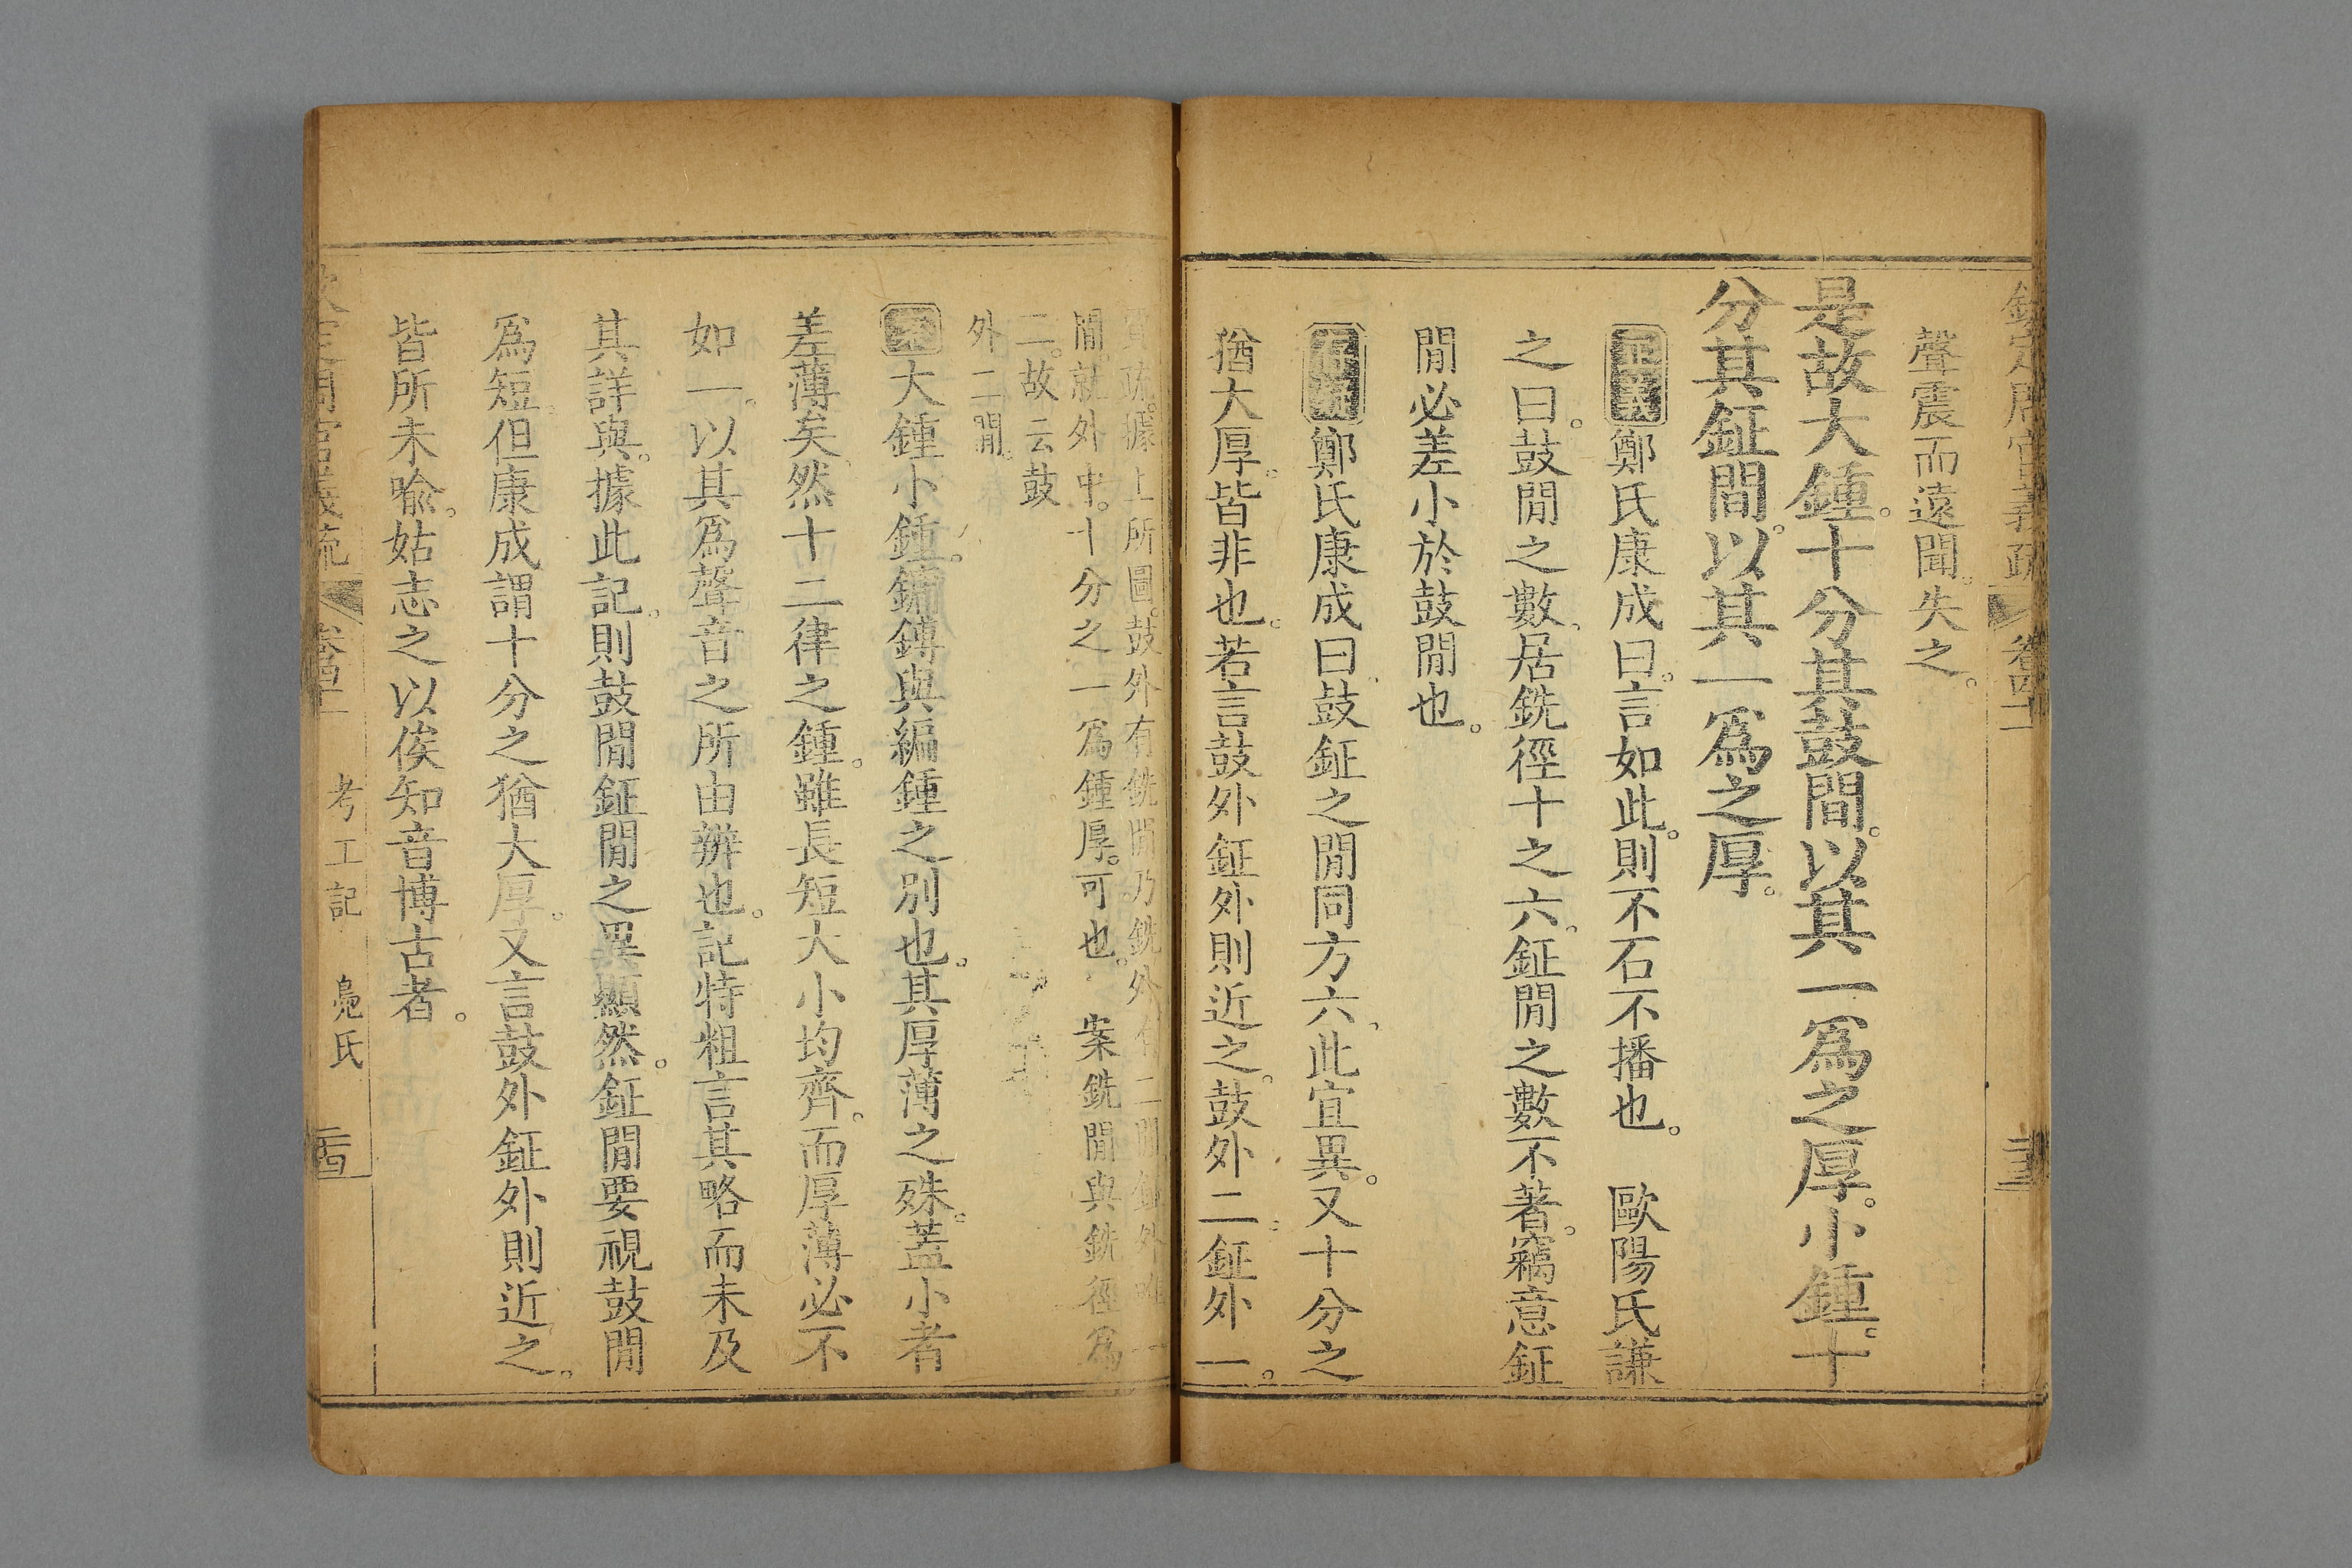 欽定周官義疏 卷四十二
聲震而遠聞。失之。
是故大鍾。十分其鼓間。以其一爲之厚。小鍾。十
分其鉦間。以其一爲之厚。
正義鄭氏康成曰。言如此。則不石不播也。 歐陽氏謙
之曰。鼓閒之數。居銑徑十之六。鉦閒之數不著。竊意鉦
閒必差小於鼓閒也。
存疑鄭氏康成曰。鼓鉦之閒同方六。此宜異。又十分之
猶大厚。皆非也。若言鼓外鉦外則近之。鼓外二。鉦外一。
賈疏。據上所圖。鼓外有銑閒。乃銑外有二閒。鉦外唯一
閒。就外中。十分之一爲鍾厚。可也。 案銑閒與銑徑爲
二。故云鼓
外二閒。
案大鍾小鍾。鏞鎛與編鍾之別也。其厚薄之殊。蓋小者
差薄矣。然十二律之鍾。雖長短大小均齊。而厚薄必不
如一。以其爲聲音之所由辨也。記特粗言其略而未及
其詳與。據此記。則鼓閒鉦閒之異顯然。鉦閒要視鼓閒
爲短。但康成謂十分之猶大厚。又言鼓外鉦外則近之。
皆所未喩。姑志之以俟知音博古者。
欽定周官義疏 卷四十二 考工記 鳧氏